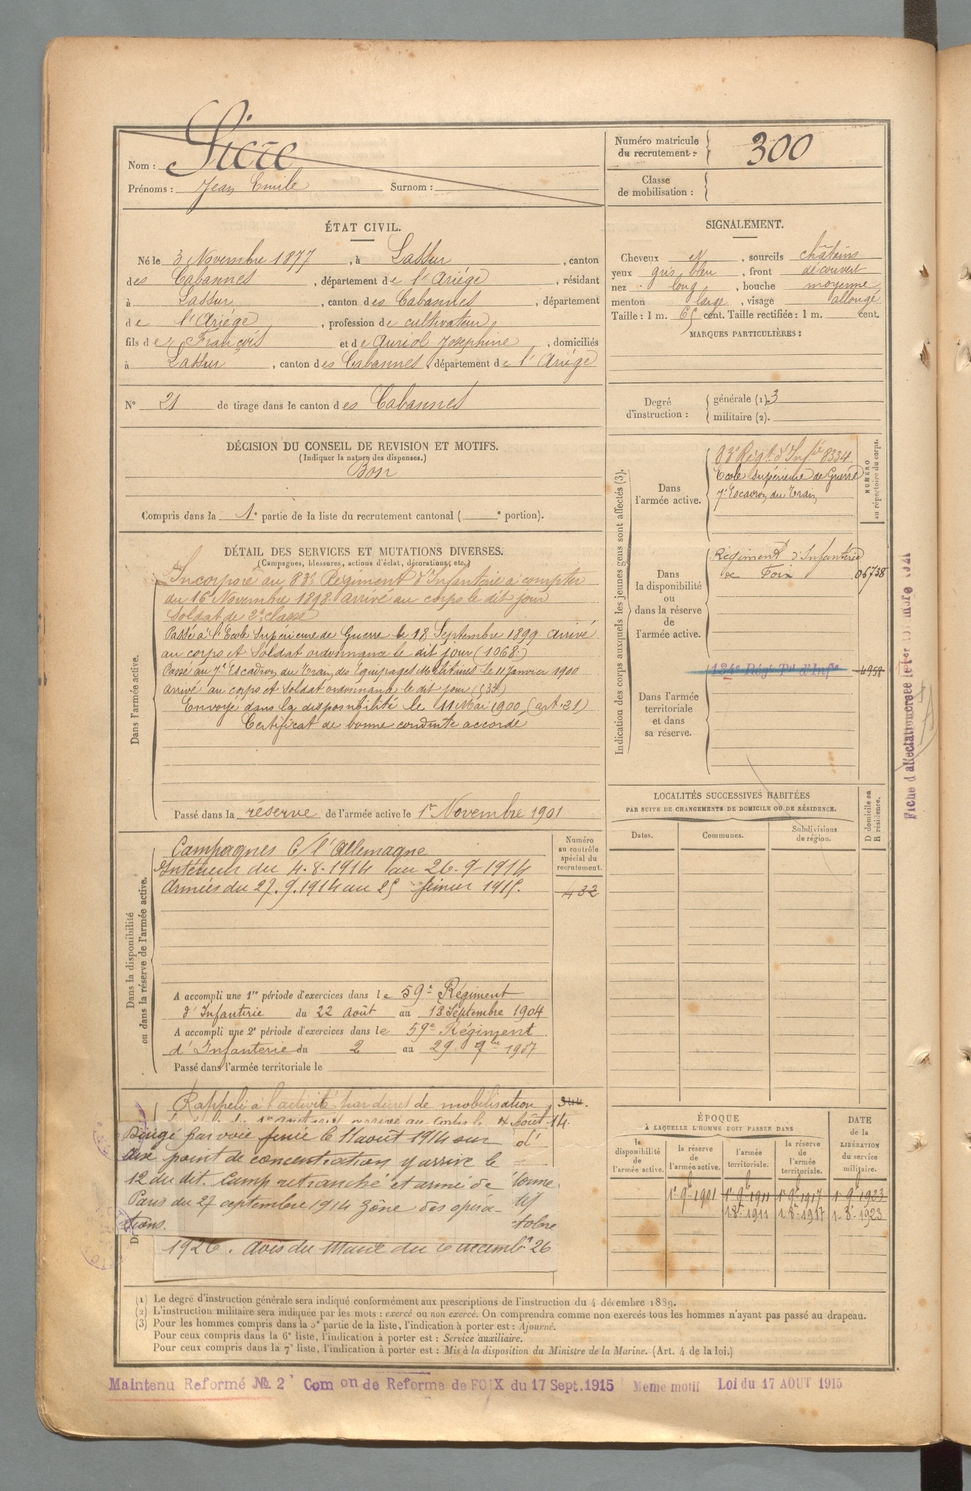 Nom : Sicre
Prénoms : Jean Emile Surnom :
Numéro matricule du recrutement : 300
Classe de mobilisation :
ÉTAT CIVIL.
Né le 3 Novembre 1877, à Lassur, canton
des Cabannes, département de l'Ariége, résidant
à Lassur, canton des Cabannes, département
de l'Ariége, profession de cultivateur,
fils de François et de Auriol Josephine, domiciliés
à Lassur, canton des Cabannes, département de l'Ariége
N° 21 de tirage dans le canton des Cabannes
SIGNALEMENT.
Cheveux N, sourcils châtains
yeux gris bleu, front découvert
nez long, bouche moyenne
menton large, visage allongé
Taille : 1 m. 65 cent. Taille rectifiée : 1 m. cent.
MARQUES PARTICULIÈRES :
Degré d'instruction : générale (1) 3
militaire (2).
DÉCISION DU CONSEIL DE REVISION ET MOTIFS.
(Indiquer la nature des dispenses.)
Bon
Compris dans la 1e partie de la liste du recrutement cantonal ( e portion).
DÉTAIL DES SERVICES ET MUTATIONS DIVERSES.
(Campagnes, blessures, actions d'éclat, décorations, etc.)
Dans l'armée active.
Incorporé au 83e Régiment d'Infanterie à compter
du 16 Novembre 1898. arrivé au corps le dit jour
Soldat de 2e classe
Passé à l'Ecole Supérieure de Guerre le 18 Septembre 1899 arrivé
au corps et Soldat ordonnance le dit jour (1068.)
Passé au 7e Escadron du Train des Equipages Militaires le 11 Janvier 1900
arrivé au corps et Soldat ordonnance le dit jour
Envoyé dans la disponibilité le 11 Mai 1900 (art. 21)
Certificat de bonne conduite accordé
Passé dans la réserve de l'armée active le 1er Novembre 1901
Indication des corps auxquels les jeunes gens sont affectés (3).
NUMÉRO au répertoire du corps.
Dans l'armée active.
83e Régt d'Infie 8334
Ecole Supérieure de Guerre
7e Escadron du Train
Dans la disponibilité ou dans la réserve de l'armée active.
Régiment d'Infanterie
de Foix 06738
Dans l'armée territoriale et dans sa réserve.
134e Régt Tal d'Infie 4958
LOCALITÉS SUCCESSIVES HABITÉES
PAR SUITE DE CHANGEMENTS DE DOMICILE OU DE RÉSIDENCE.
Dates. Communes. Subdivisions de région. D domicile ou R résidence.
Dans la disponibilité ou dans la réserve de l'armée active.
Numéro au contrôle spécial du recrutement.
432
Campagnes C l'Allemagne
Intérieur du 4.8.1914 au 26.9.1914
Armées du 27.9.1914 au 25 février 1915.
A accompli une 1re période d'exercices dans le 59e Régiment
d'Infanterie du 22 août au 18 Septembre 1904
A accompli une 2e période d'exercices dans le 59e Régiment
d'Infanterie du 2 au 29 9bre 1907
Passé dans l'armée territoriale le
Rappelé à l'activité par décret de mobilisation
Dirigé par voie ferrée le 11 août 1914 sur
point de concentration y arrive le
12 du dit. Camp retranché et armé de
Paris du 27 septembre 1914 Zône des opéra-
tions.
1926. Avis du Maire du
ÉPOQUE
À LAQUELLE L'HOMME DOIT PASSER DANS
la disponibilité de l'armée active.
la réserve de l'armée active.
l'armée territoriale.
la réserve de l'armée territoriale.
DATE de la LIBÉRATION du service militaire.
1r 9b 1901 1r 9b 1911 1r 9b 1917 1r 9b 1923
(1) Le degré d'instruction générale sera indiqué conformément aux prescriptions de l'instruction du 4 décembre 1889.
(2) L'instruction militaire sera indiquée par les mots : exercé ou non exercé. On comprendra comme non exercés tous les hommes n'ayant pas passé au drapeau.
(3) Pour les hommes compris dans la 5e partie de la liste, l'indication à porter est : Ajourné.
Pour ceux compris dans la 6e liste, l'indication à porter est : Service auxiliaire.
Pour ceux compris dans la 7e liste, l'indication à porter est : Mis à la disposition du Ministre de la Marine. (Art. 4 de la loi.)
Maintenu Reformé No. 2 Com on de Reforme de FOIX du 17 Sept. 1915 Meme motif Loi du 17 AOUT 1915